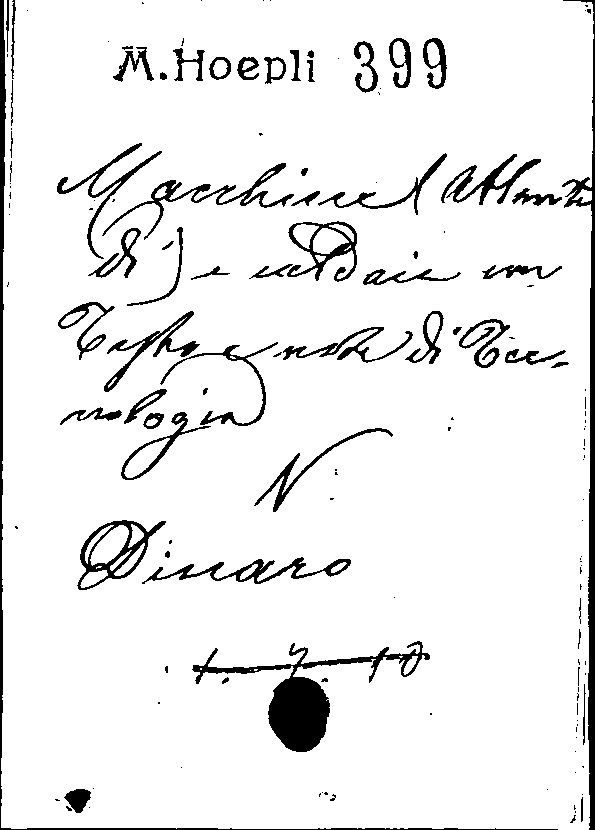 M. Hoepli 399
Macchine (Atlante
di) e caldaie con
Testo e note di Tec-
nologia
N
Dinaro
1. 7. 10